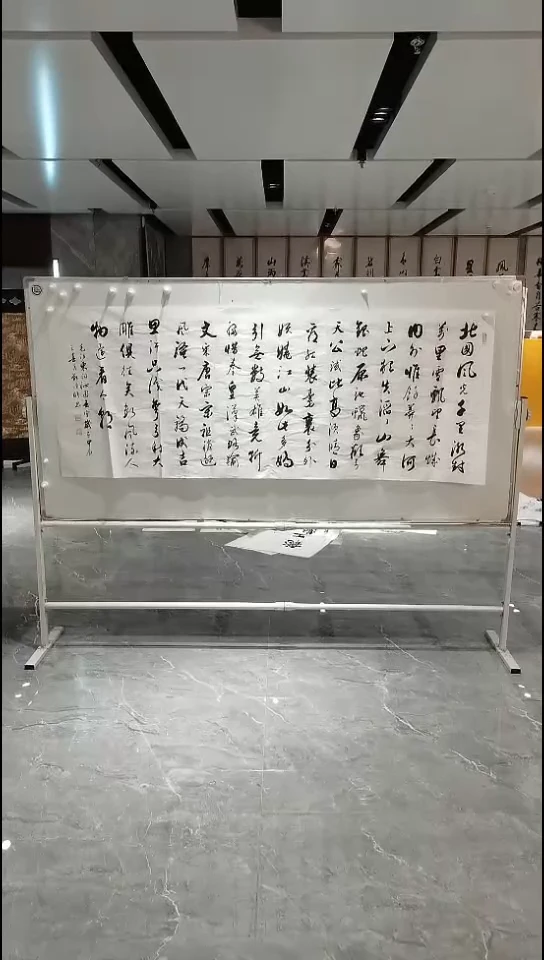 北国风光千里冰封
万里雪飘望长城
内外惟余莽莽大河
上下顿失滔滔山舞
银蛇原驰蜡象欲与
天公试比高须晴日
看红装素裹分外
妖娆江山如此多娇
引无数英雄竞折
腰惜秦皇汉武略输
文采唐宗宋祖稍逊
风骚一代天骄成吉
思汗只识弯弓射大
雕俱往矣数风流人
物还看今朝
毛泽东词沁园春雪